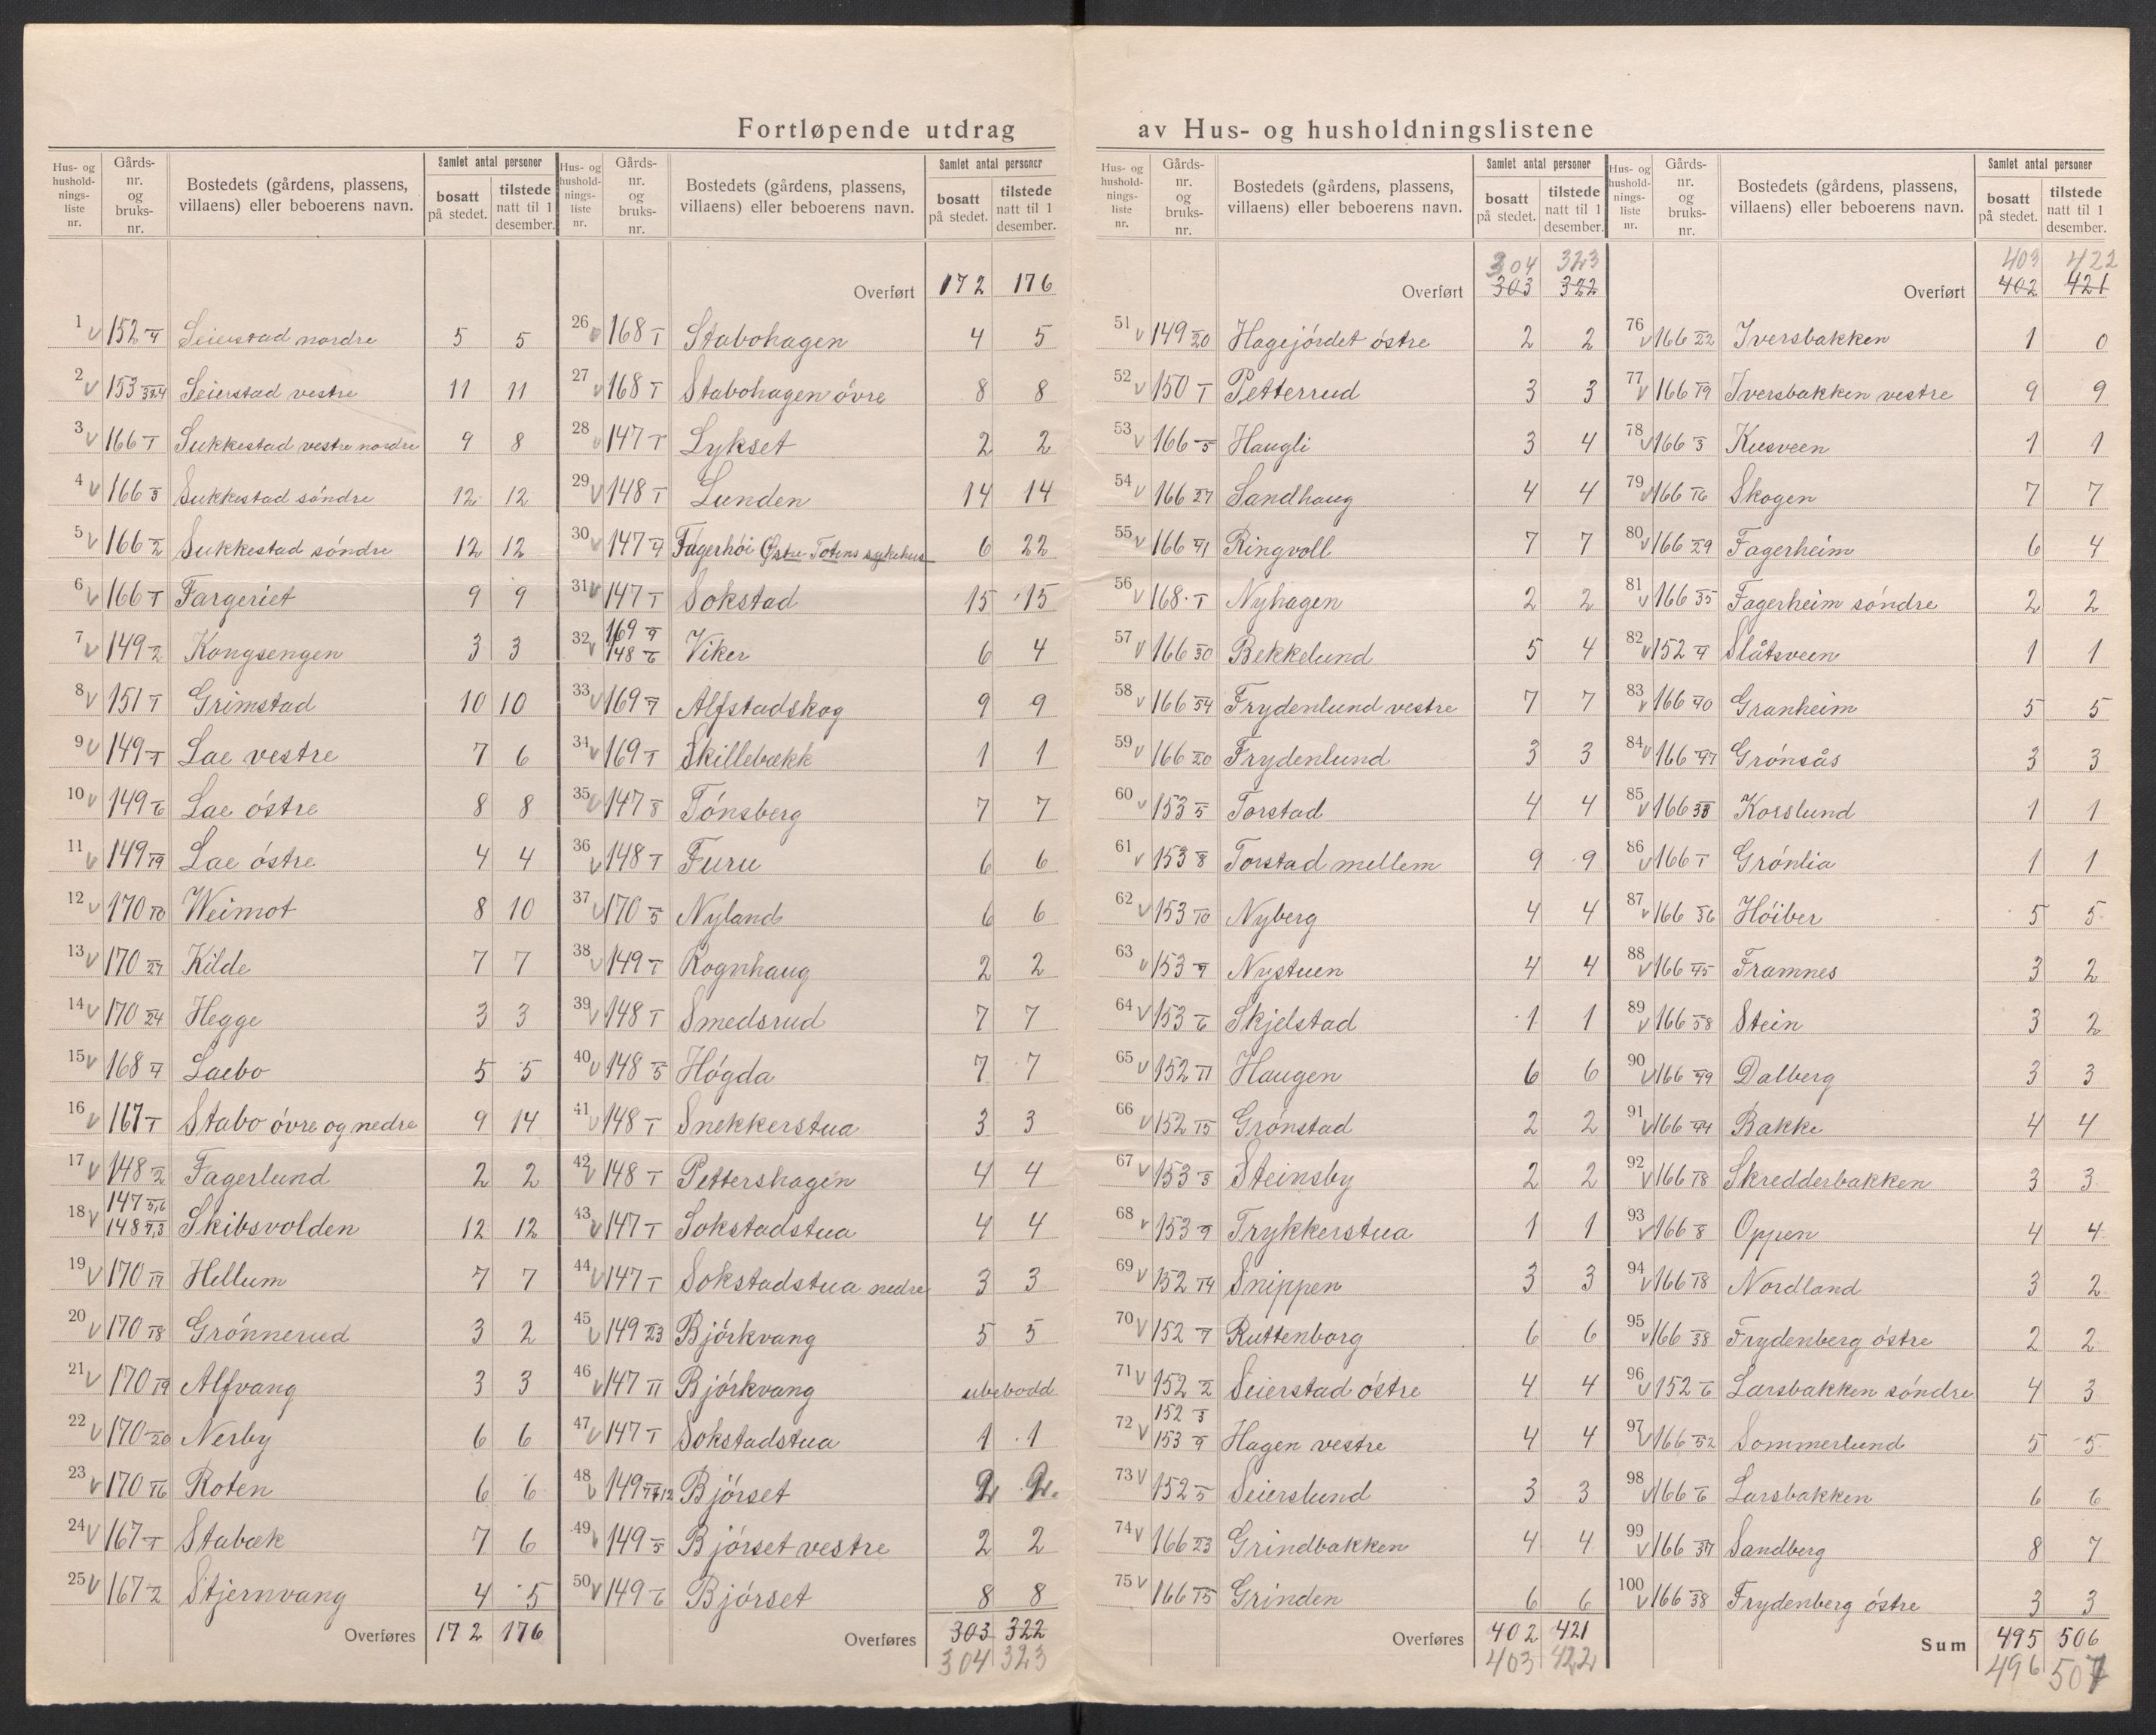 Fortløpende utdrag av Hus- og husholdningslistene
Hus- og husholdnings-liste nr. Gårds-nr. og bruks-nr. Bostedets (gårdens, plassens, villaens) eller beboerens navn. Samlet antal personer bosatt på stedet. tilstede natt til 1 desember.
1 v 152 4 Seierstad nordre 5 5
2 v 153 3&4 Seierstad vestre 11 11
3 v 166 1 Sukkestad vestre nordre 9 8
4 v 166 3 Sukkestad søndre 12 12
5 v 166 2 Sukkestad søndre 12 12
6 v 166 1 Fargeriet 9 9
7 v 149 2 Kongsengen 3 3
8 v 151 1 Grimstad 10 10
9 v 149 1 Lae vestre 7 6
10 v 149 6 Lae østre 8 8
11 v 149 19 Lae østre 4 4
12 v 170 10 Weimot 8 10
13 v 170 27 Kilde 7 7
14 v 170 24 Hegge 3 3
15 v 168 4 Laebo 5 5
16 v 167 1 Stabo øvre og nedre 9 14
17 v 148 2 Fagerlund 2 2
18 v 147 5,6 148 1,3 Skibsvolden 12 12
19 v 170 17 Hellum 7 7
20 v 170 18 Grønnerud 3 2
21 v 170 19 Alfvang 3 3
22 v 170 20 Nerby 6 6
23 v 170 16 Roten 6 6
24 v 167 1 Stabæk 7 6
25 v 167 2 Stjernvang 4 5
Overføres 172 176
Hus- og husholdnings-liste nr. Gårds-nr. og bruks-nr. Bostedets (gårdens, plassens, villaens) eller beboerens navn. Samlet antal personer bosatt på stedet. tilstede natt til 1 desember.
Overført 172 176
26 v 168 1 Stabohagen 4 5
27 v 168 1 Stabohagen øvre 8 8
28 v 147 1 Lykset 2 2
29 v 148 1 Lunden 14 14
30 v 147 4 Fagerhøi Østre Totens sykehus 6 22
31 v 147 1 Sokstad 15 15
32 v 169 9 148 6 Viker 6 4
33 v 169 7 Alfstadskog 9 9
34 v 169 1 Skillebækk 1 1
35 v 147 8 Tønsberg 7 7
36 v 148 1 Furu 6 6
37 v 170 5 Nyland 6 6
38 v 149 1 Rognhaug 2 2
39 v 148 1 Smedsrud 7 7
40 v 148 5 Høgda 7 7
41 v 148 1 Snekkerstua 3 3
42 v 148 1 Pettershagen 4 4
43 v 147 1 Sokstadstua 4 4
44 v 147 1 Sokstadstua nedre 3 3
45 v 149 23 Bjørkvang 5 5
46 v 147 11 Bjørkvang ubebodd
47 v 147 1 Sokstadstua 1 1
48 v 149 Bjørset 2 2
49 v 149 5 Bjørset vestre 2 2
50 v 149 6 Bjørset 8 8
Overføres 303 322
304 323
Hus- og husholdnings-liste nr. Gårds-nr. og bruks-nr. Bostedets (gårdens, plassens, villaens) eller beboerens navn. Samlet antal personer bosatt på stedet. tilstede natt til 1 desember.
304 323
Overført 303 322
51 v 149 20 Hagejordet østre 2 2
52 v 150 1 Petterrud 3 3
53 v 166 5 Haugli 3 4
54 v 166 27 Sandhaug 4 4
55 v 166 41 Ringvoll 7 7
56 v 168 1 Nyhagen 2 2
57 v 166 30 Bekkelund 5 4
58 v 166 54 Frydenlund vestre 7 7
59 v 166 20 Frydenlund 3 3
60 v 153 5 Torstad 4 4
61 v 153 8 Torstad mellem 9 9
62 v 153 10 Nyberg 4 4
63 v 153 7 Nystuen 4 4
64 v 153 6 Skjelstad 1 1
65 v 152 11 Haugen 6 6
66 v 152 15 Grønstad 2 2
67 v 153 3 Steinsby 2 2
68 v 153 9 Trykkerstua 1 1
69 v 152 14 Snippen 3 3
70 v 152 7 Ruttenborg 6 6
71 v 152 2 Seierstad østre 4 4
72 v 152 3 153 9 Hagen vestre 4 4
73 v 152 5 Seierslund 3 3
74 v 166 23 Grindbakken 4 4
75 v 166 15 Grinden 6 6
Overføres 402 421
403 422
Hus- og husholdnings-liste nr. Gårds-nr. og bruks-nr. Bostedets (gårdens, plassens, villaens) eller beboerens navn. Samlet antal personer bosatt på stedet. tilstede natt til 1 desember.
403 422
Overført 402 421
76 v 166 22 Iversbakken 1 0
77 v 166 19 Iversbakken vestre 9 9
78 v 166 3 Kusveen 1 1
79 v 166 16 Skogen 7 7
80 v 166 29 Fagerheim 6 4
81 v 166 35 Fagerheim søndre 2 2
82 v 152 4 Slåtsveen 1 1
83 v 166 40 Granheim 5 5
84 v 166 47 Grønsås 3 3
85 v 166 Korslund 1 1
86 v 166 1 Grønlia 1 1
87 v 166 36 Høiber 5 5
88 v 166 45 Framnes 3 2
89 v 166 58 Stein 3 2
90 v 166 49 Dalberg 3 3
91 v 166 44 Bakke 4 4
92 v 166 18 Skredderbakken 3 3
93 v 166 8 Oppen 4 4
94 v 166 18 Nordland 3 2
95 v 166 38 Frydenberg østre 2 2
96 v 152 6 Larsbakken søndre 4 3
97 v 166 52 Sommerlund 5 5
98 v 166 6 Larsbakken 6 6
99 v 166 37 Sandberg 8 7
100 v 166 38 Frydenberg østre 3 3
Sum 495 506
496 507